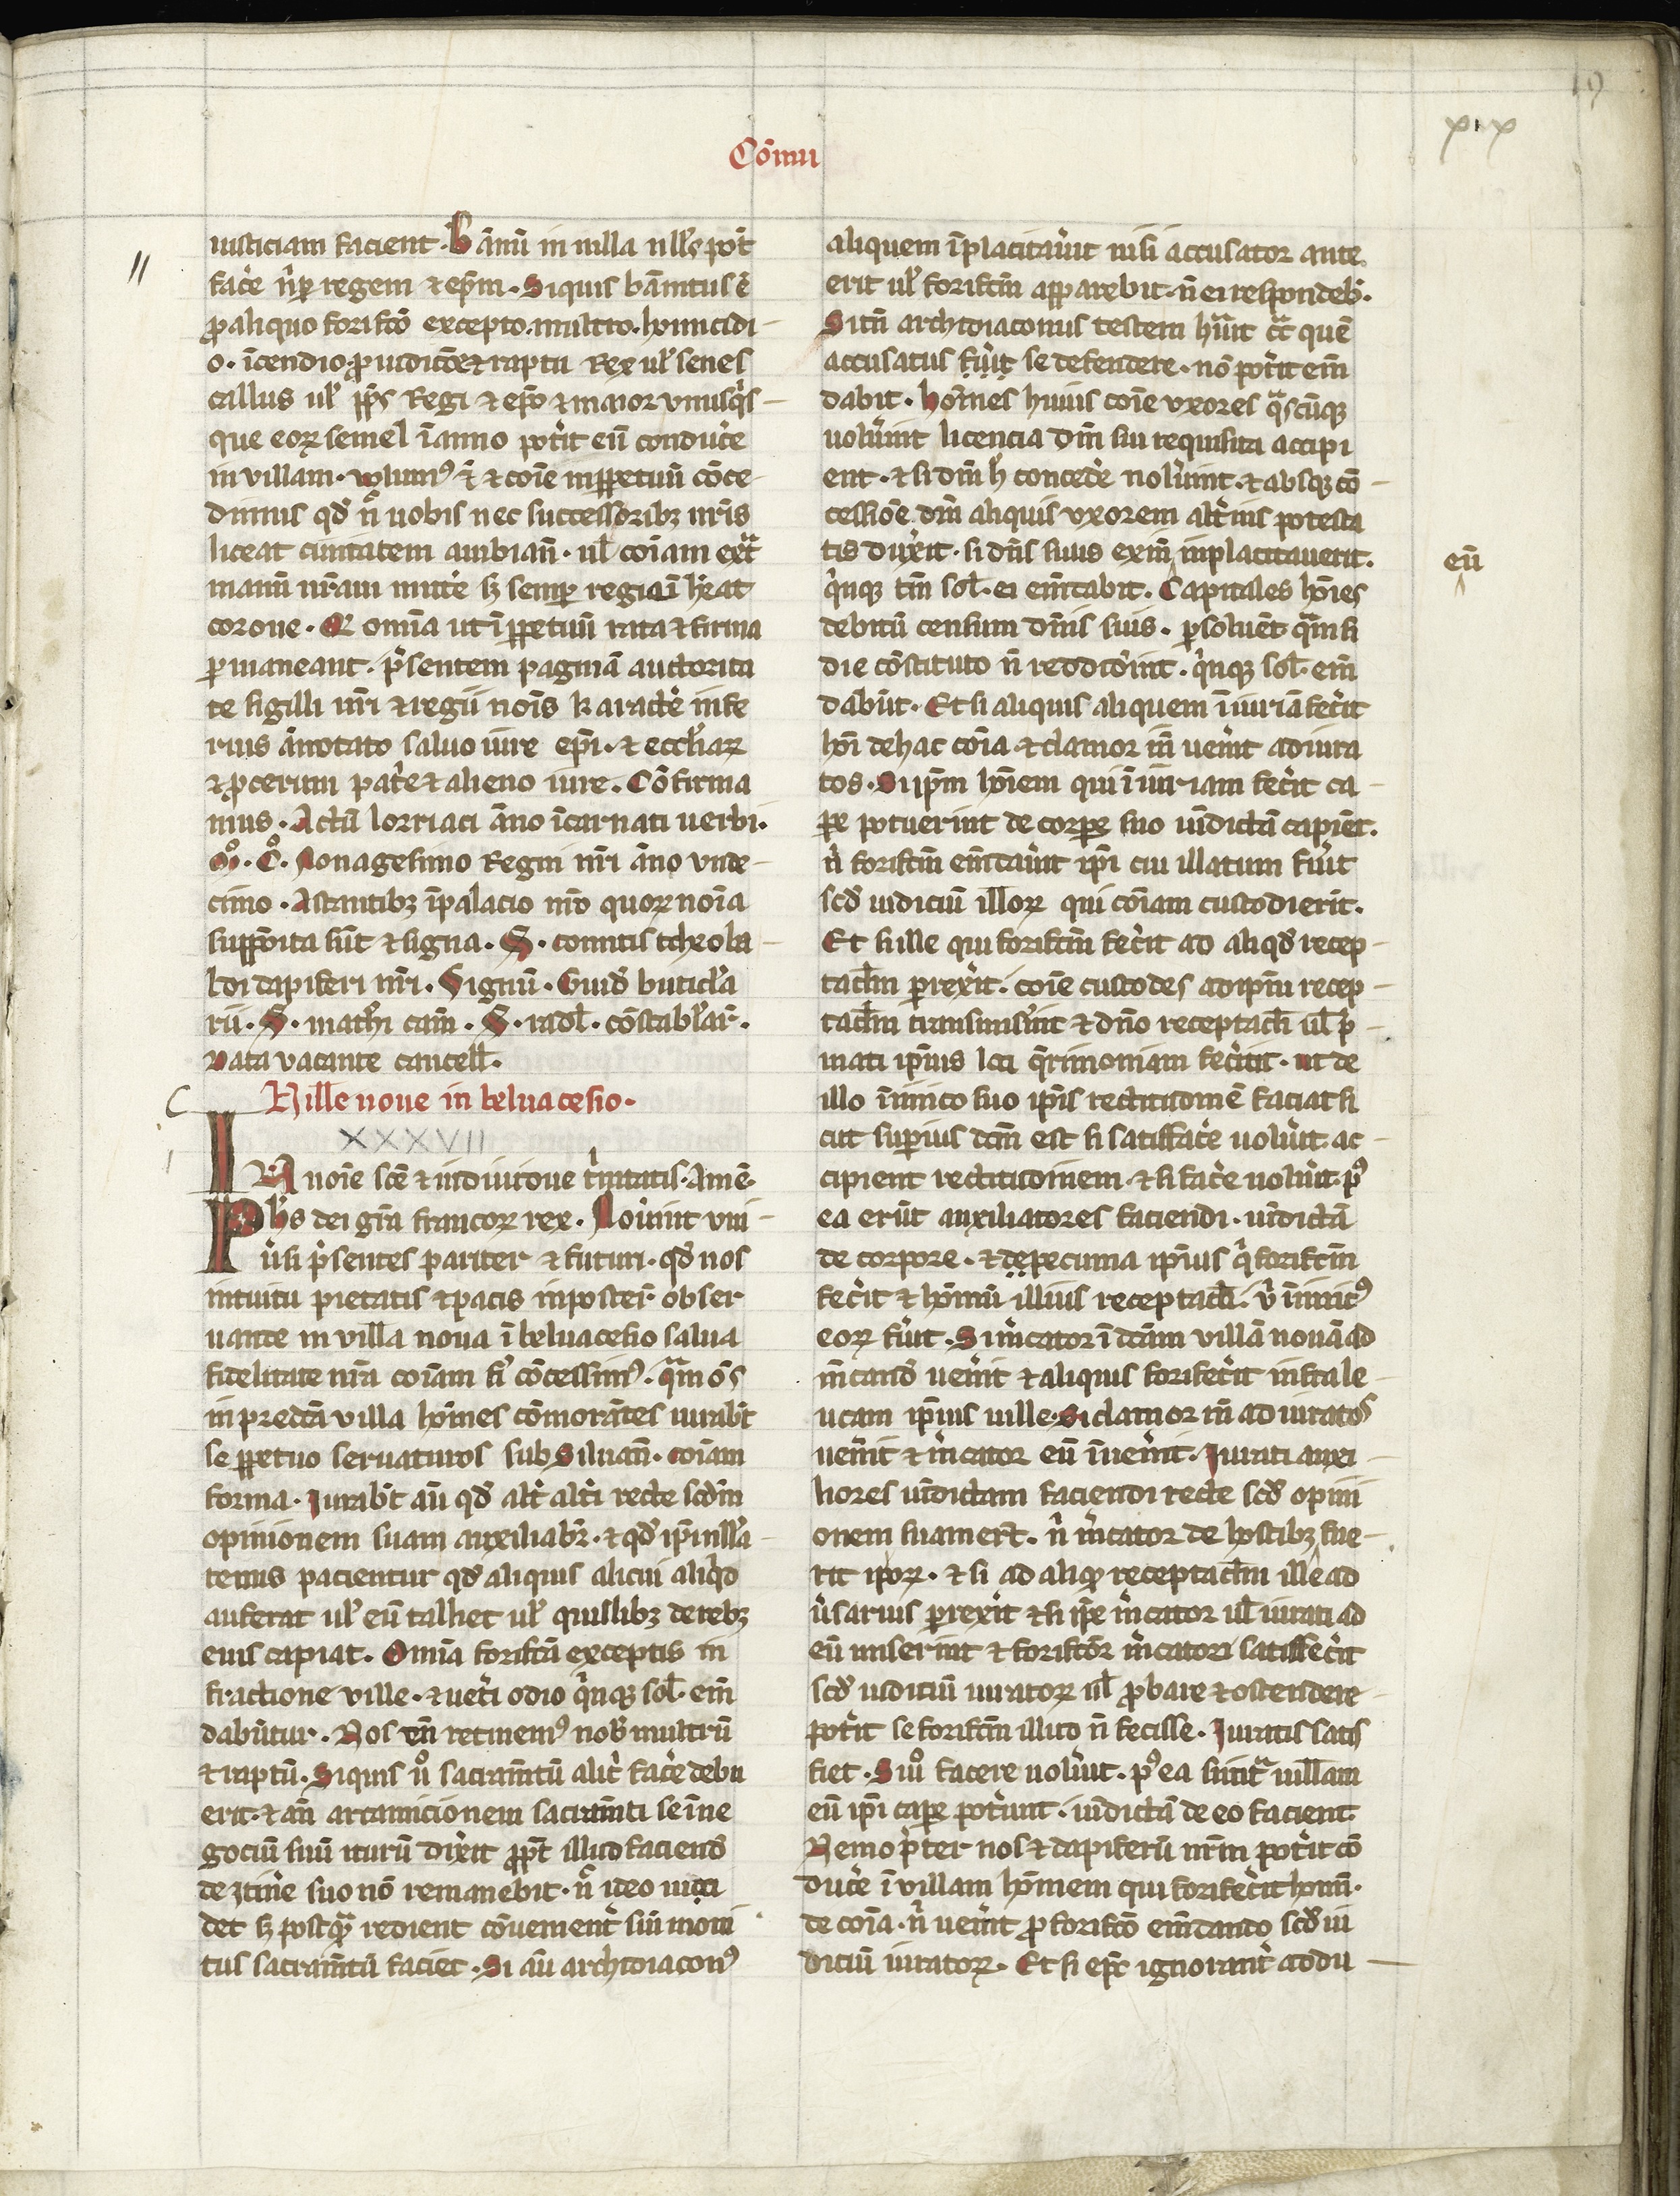 19
xix
Cōmu
iusticiam facient. Bānū in uilla nll's pōt
fac̄e n̄ p̄ regem ⁊ ep̄m. Siquis bānitus ē
ꝓ aliquo forifc̄o excepto. multro. homicidi-
o. īcendio ꝓdic̄oe ⁊ raptu Rex ul' senes
callus ul' ip̄s Regi ⁊ ep̄o ⁊ maior vnusq's-
que eoꝝ semel ī anno pot'it eū conduc̄e
in villam. volum⁹ ⁊ coīe inꝑpetuū cōce-
dimus qd̄ n̄ nobis nec successoribꝫ nr̄is
liceat ciuitatem ambian̄. ul' coīam ext̄
manū nr̄am mitte sꝫ semꝑ regia īh̄eat
corone. Q omīa ut īꝑpetuū rata ⁊ firma
ꝑmaneant. p̄sentem paginā auctorita
te sigilli nr̄i ⁊ regii noīs karactē infe
rius ānotato saluo iure ep̄i. ⁊ eccl'iaꝝ
⁊ ꝓcerum pat'e ⁊ alieno iure. Cōfirma
mus. Actū lorriaci āno īcarnati uerbi.
M°. C°. Nonagesimo Regni nr̄i āno vnde-
cimo. Astantibꝫ īpalacio nr̄o quoꝝ noīa
supp̄oita sūt ⁊ signa. S. comitis theoba-
ldi dapiferi nr̄i. Signū. Guid' buticl'a
rii. S. math'i cam̄. S. radl'. cōstabl'ar̄.
Data vacante cancell'.
Ville noue in beluacesio.
XXXVII
IN noīe sc̄e ⁊ indiuidue t'nitatis. Amē.
Phs dei grā francoꝝ rex. Nouint vni-
u'si p̄sentes pariter ⁊ futuri. qd̄ nos
intuitu pietatis ⁊ pacis inposter̄ obser
uante in villa noua ī beluacesio salua
fidelitate nr̄a coīam fī cōcessim⁹. qām oēs
in predc̄ā villa hoīnes cōmorātes iurabt̄
se ꝑpetuo seruaturos sub Siluan̄. coīam
forma. Iurabt̄ aū qd̄ alt' alt'i recte scd̄m
opinionem suam auxiliabr̄. ⁊ qd̄ ip̄i null'a-
tenus pacientur qd̄ aliquis alicui aliq'd
auferat ul' eū talliet ul' quislibꝫ de rebꝫ
eius capiat. Omīa forifc̄ā exceptis in
fractione ville. ⁊ uet'i odio q'nqꝫ sol'. em̄
dabūtur. Nos en̄ retinem⁹ nob' multrū
⁊ raptū. Siquis u° sacram̄tū alic̄ fac̄e debu
erit. ⁊ an̄ arramicionem sacram̄ti se īne
gociū suū iturū dix'it ꝓpt' illud faciend'
de itīne suo nō remanebit. n̄ ideo iudi
det sꝫ postq̄ redient cōuenient' sūmoni
tus sacram̄tū faciet. Si aū archidiacon⁹
aliquem īplacitau'it nisi accusator ante
erit ul' forifc̄m apparebit. n̄ ei respondeb'.
Si tn̄ archidiaconus testem hu'it cōt̄ quē
accusatus fu'it se defendere. nō pot'it em̄
dabit. Hoīnes huius coīe vxores q̄scūqꝫ
uolu'int licencia dn̄i sui requisita accipi
ent. ⁊ si dn̄i h̄ conced'e nolu'int. ⁊ absqꝫ cō-
cessiōe dn̄i aliquis vxorem alt'ius potesta
tis dux'it. si dn̄s suus exin̄ inplacitauerit.
eū
q'nqꝫ tm̄ sol'. ei emdabit. Capitales hōies
debitū censum dn̄is suis. ꝑsoluēt qām si
die cōstituto n̄ reddid'int. q'nqꝫ sol'. em̄
dabūt. Et si aliquis aliquem īiuriā fec'it
hōi de hac coīa. ⁊ clamor in̄ uen'it ad iura
tos. Si ip̄m hoīem qui īiuriam fec'it ca-
ꝑe potuerint de corꝑe suo uīdictā capiēt.
n̄ forifc̄m emdau'it ip̄i cui illatum fu'it
scd̄ iudiciū illoꝝ qui coīam custodierit.
Et si ille qui forifc̄m fec'it ad aliqd̄ recep-
tacl'm ꝑrex'it. coīe custodes ad ip̄m recep-
tacl'm transmis'int ⁊ dn̄o receptacl'i ul' p̄-
mati ip̄ius loci q̄rimoniam fec'int. ut de
illo īimico suo ip̄is rectitudinē faciat si
cut suꝑius dc̄m est si satisfac̄e uolu'it. ac-
cipient rectitudinem. ⁊ si fac̄e nolu'it. p⁹
ea erūt auxiliatores faciendi. uīdictā
de corpore. ⁊ de pecunia ip̄ius q' forifc̄m
fec'it ⁊ hoīnū illius receptacl'i. u' īimic⁹
eoꝝ fu'it. Si m̄cator ī dc̄am villā nouā ad
m̄cand' uen'it ⁊ aliquis forifec'it inf̄ ale-
ucam ip̄ius uille. Si clamor in̄ ad iuratos
uen'it ⁊ m̄cator eū īuen'it. Iurati auxi-
liores uīdictam faciendi recte scd̄ opini
onem suam er̄t. n̄ m̄cator de hostibꝫ fue-
rit ip̄oꝝ. ⁊ si ad aliqd̄ receptacl'm ille ad
u'sarius ꝑrex'it ⁊ si ip̄e m̄cator ul' iurati ad
eū miserint ⁊ forifc̄or m̄catori satisfec'it
scd̄ iudiciū iuratoꝝ ul' ꝓbare ⁊ ostendere-
pot'it se forifc̄m illud n̄ fecisse. Iuratis satis
fiet. Si u° facere nolu'it. p⁹ea si īnt̄ uillam
eū ip̄i caꝑe pot'unt. uīdictā de eo facient
Nemo p̄ter nos ⁊ dapiferū nr̄m pot'it cō
duc̄e ī villam hoīnem qui forifec'it hoīn̄.
de coīa. n̄ uen'it ꝓ forifc̄o emdando scd̄ iu
diciū iuratoꝝ. Et si ep̄c ignorant' addu-